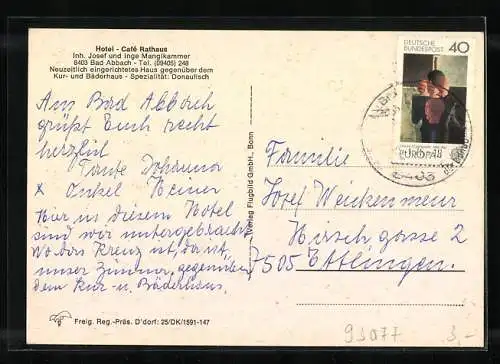 Hotel - Café Rathaus
Inh. Josef und Inge Manglkammer
8403 Bad Abbach - Tel. (09405) 248
Neuzeitlich eingerichtetes Haus gegenüber dem
Kur- und Bäderhaus - Spezialität: Donaufisch
Aus Bad Abbach
grüßt Euch recht
herzlich
Tante Johanna
+ Onkel Heiner
Hier in diesem Hotel
sind wir untergebracht
Wo das Kreuz ist, da ist
unser Zimmer, gegenüber
dem Kur u. Bäderhaus.
Freig. Reg.-Präs. D'dorf: 25/DK/1591-147
Verlag Flugbild GmbH., Bonn
DEUTSCHE
BUNDESPOST
40
EUROPA
8403
Familie
Josef Weickenmeier
Hirschgasse 2
7505 Ettlingen
93077
3,-